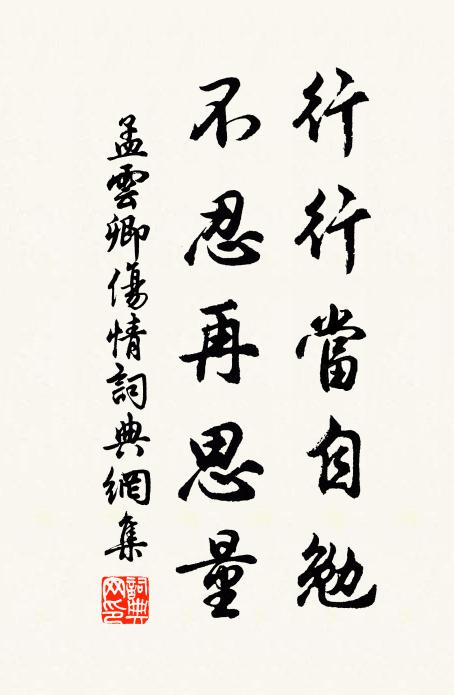 行行當自勉
不忍再思量
孟雲卿傷情詞典網集
詞典网印